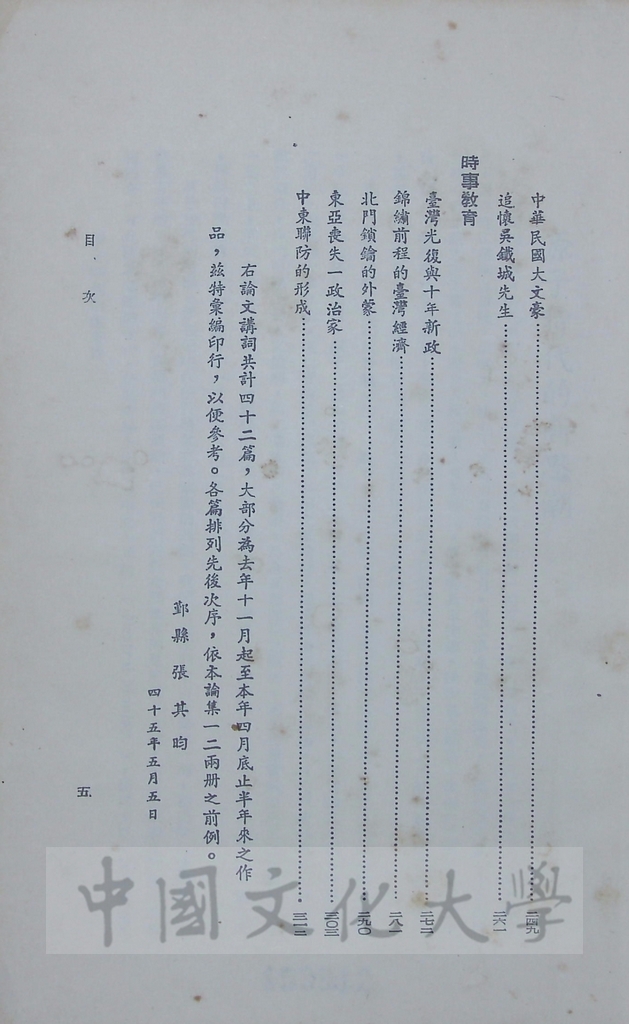 中華民國大文豪……二四九
追懷吳鐵城先生……二六一
時事教育
臺灣光復與十年新政……二七二
錦繡前程的臺灣經濟……二八一
北門鎖鑰的外蒙……二九〇
東亞喪失一政治家……三〇三
中東聯防的形成……三一二
右論文講詞共計四十二篇，大部分為去年十一月起至本年四月底止半年來之作
品，茲特彙編印行，以便參考。各篇排列先後次序，依本論集一二兩冊之前例。
鄞縣 張其昀
四十五年五月五日
目、次
五
中國文化大學